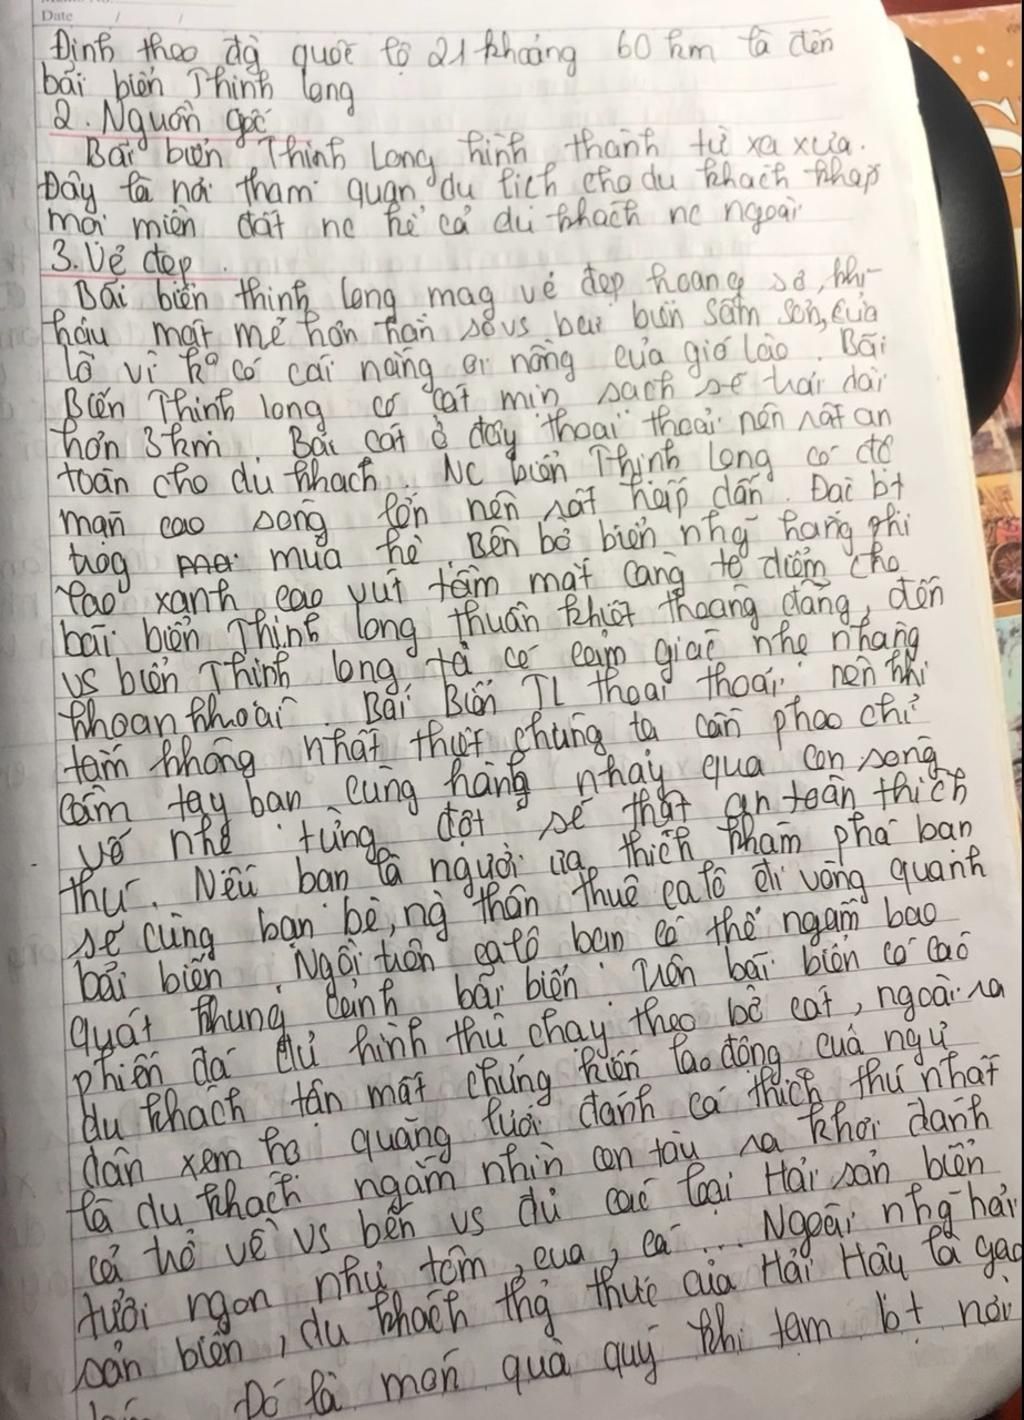 Date / /
Định theo đg quốc lộ 21 khoảng 60 km là đến
bãi biển Thịnh Long
2. Nguồn gốc
Bãi biển Thịnh Long hình thành từ xa xưa.
Đây là nơi tham quan du lịch cho du khách khắp
mọi miền đất nc kể cả du khách nc ngoài
3. Vẻ đẹp.
Bãi biển thịnh long mag vẻ đẹp hoang sơ, khí
hậu mát mẻ hơn hẳn so vs bãi biển Sầm Sơn, Cửa
Lò vì ko có cái nắng oi nồng của gió lào. Bãi
Biển Thịnh long có cát mịn sạch sẽ trải dài
hơn 3km. Bãi cát ở đây thoai thoải nên rất an
toàn cho du khách. NC biển Thịnh Long có độ
mặn cao sóng lớn nên rất hấp dẫn. Đặc bt
trog mùa hè. Bên bờ biển nhg hàng phi
lao xanh cao vút tầm mắt càng tô điểm cho
bãi biển Thịnh long thuần khiết thoáng đãng, đến
vs biển Thịnh long ta có cảm giác nhẹ nhàng
khoan khoái. Bãi Biển TL thoai thoải nên khi
tắm không nhất thiết chúng ta cần phao chỉ
cầm tay bạn cùng hàng nhảy qua con sóng
vỗ nhẹ từng đợt sẽ thật an toàn thích
thú. Nếu bạn là người ưa thích khám phá bạn
sẽ cùng bạn bè, ng thân thuê ca lô đi vòng quanh
bãi biển. Ngồi trên ca lô bạn có thể ngắm bao
quát khung cảnh bãi biển. Trên bãi biển có các
phiến đá đủ hình thù chạy theo bờ cát, ngoài ra
du khách tận mắt chứng kiến lao động của ngư
dân xem họ quăng lưới đánh cá thích thú nhất
là du khách ngắm nhìn con tàu ra khơi đánh
cá trở về vs bến vs đủ các loại Hải sản biển
tươi ngon như tôm, cua, cá... Ngoài nhg hải
sản biển, du khách thg thức của Hải Hậu là gạo
Đó là món quà quý khi tạm bt nơi